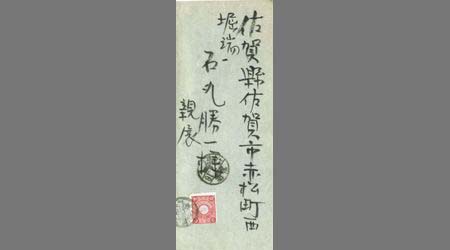 佐賀縣佐賀市赤松町西
堀端一
石丸勝一様
親展